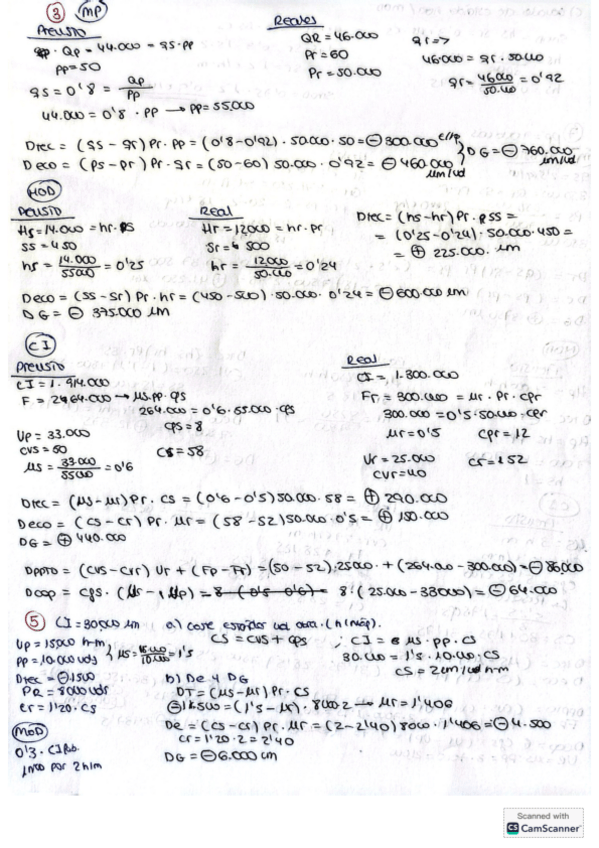 ③ MP
Previsto
Qp = 44.000 = qs·pp
pp = 50
qs = 0'8 = Qp/Pp
44.000 = 0'8 · PP → PP = 55.000
Reales
QR = 46.000
pr = 60
Pr = 50.000
qr =>
46000 = qr · 50.000
qr = 46.000/50.000 = 0'92
Dtec = (qs - qr) Pr · PP = (0'8 - 0'92) · 50.000 · 50 = ⊖ 300.000
Deco = (ps - pr) Pr · qr = (50 - 60) 50.000 · 0'92 = ⊖ 460.000 um/ud
DG = ⊖ 760.000 um/ud
MOD
Previsto
Hs = 14.000 = hr · Ps
ss = 450
hs = 14.000/55000 = 0'25
Real
Hr = 12000 = hr · Pr
Sr = 500
hr = 12000/50.000 = 0'24
Dtec = (hs - hr) Pr · ss =
= (0'25 - 0'24) · 50.000 · 450 =
= ⊕ 225.000 um
Deco = (ss - sr) Pr · hr = (450 - 500) · 50.000 · 0'24 = ⊖ 600.000 um
DG = ⊖ 375.000 um
CI
Previsto
CI = 1.914.000
F = 264.000 → µs·pp·cps
264.000 = 0'6 · 55.000 · cps
cps = 8
Up = 33.000
cvs = 50
cs = 58
µs = 33000/55000 = 0'6
Real
CI = 1.300.000
Fr = 300.000 = µr · Pr · cpr
300.000 = 0'5 · 50.000 · cpr
µr = 0'5
cpr = 12
Ur = 25.000
cr = 52
cvr = 40
Dtec = (µs - µr) Pr · cs = (0'6 - 0'5) 50.000 · 58 = ⊕ 290.000
Deco = (cs - cr) Pr · µr = (58 - 52) 50.000 · 0'5 = ⊕ 150.000
DG = ⊕ 440.000
Dppto = (cvs - cvr) Ur + (Fp - Fr) = (50 - 52) 25.000 + (264.000 - 300.000) = ⊖ 86000
Dcap = cps · (Ur - Up) = 8 · (0'5 - 0'6) = 8 · (25.000 - 33000) = ⊖ 64.000
⑤ CI = 30.000 um
a) coste estándar ud obra. (h/máq).
Up = 15000 h-m
PP = 10.000 uds
µs = 15.000/10.000 = 1'5
CS = cvs + cps
CI = µs · PP · cs
30.000 = 1'5 · 10.000 · cs
cs = 2 um/ud hm
Dtec = ⊖ 1500
PR = 8000 uds
cr = 1'20 · cs
b) De y DG
DT = (µs - µr) Pr · cs
⊖ 1.500 = (1'5 - µr) · 8000 · 2 → µr = 1'406
De = (cs - cr) Pr · µr = (2 - 2'40) 8000 · 1'406 = ⊖ 4.500
cr = 1'20 · 2 = 2'40
DG = ⊖ 6.000 um
MOD
0'3
por 2 h/m
Scanned with
CS CamScanner